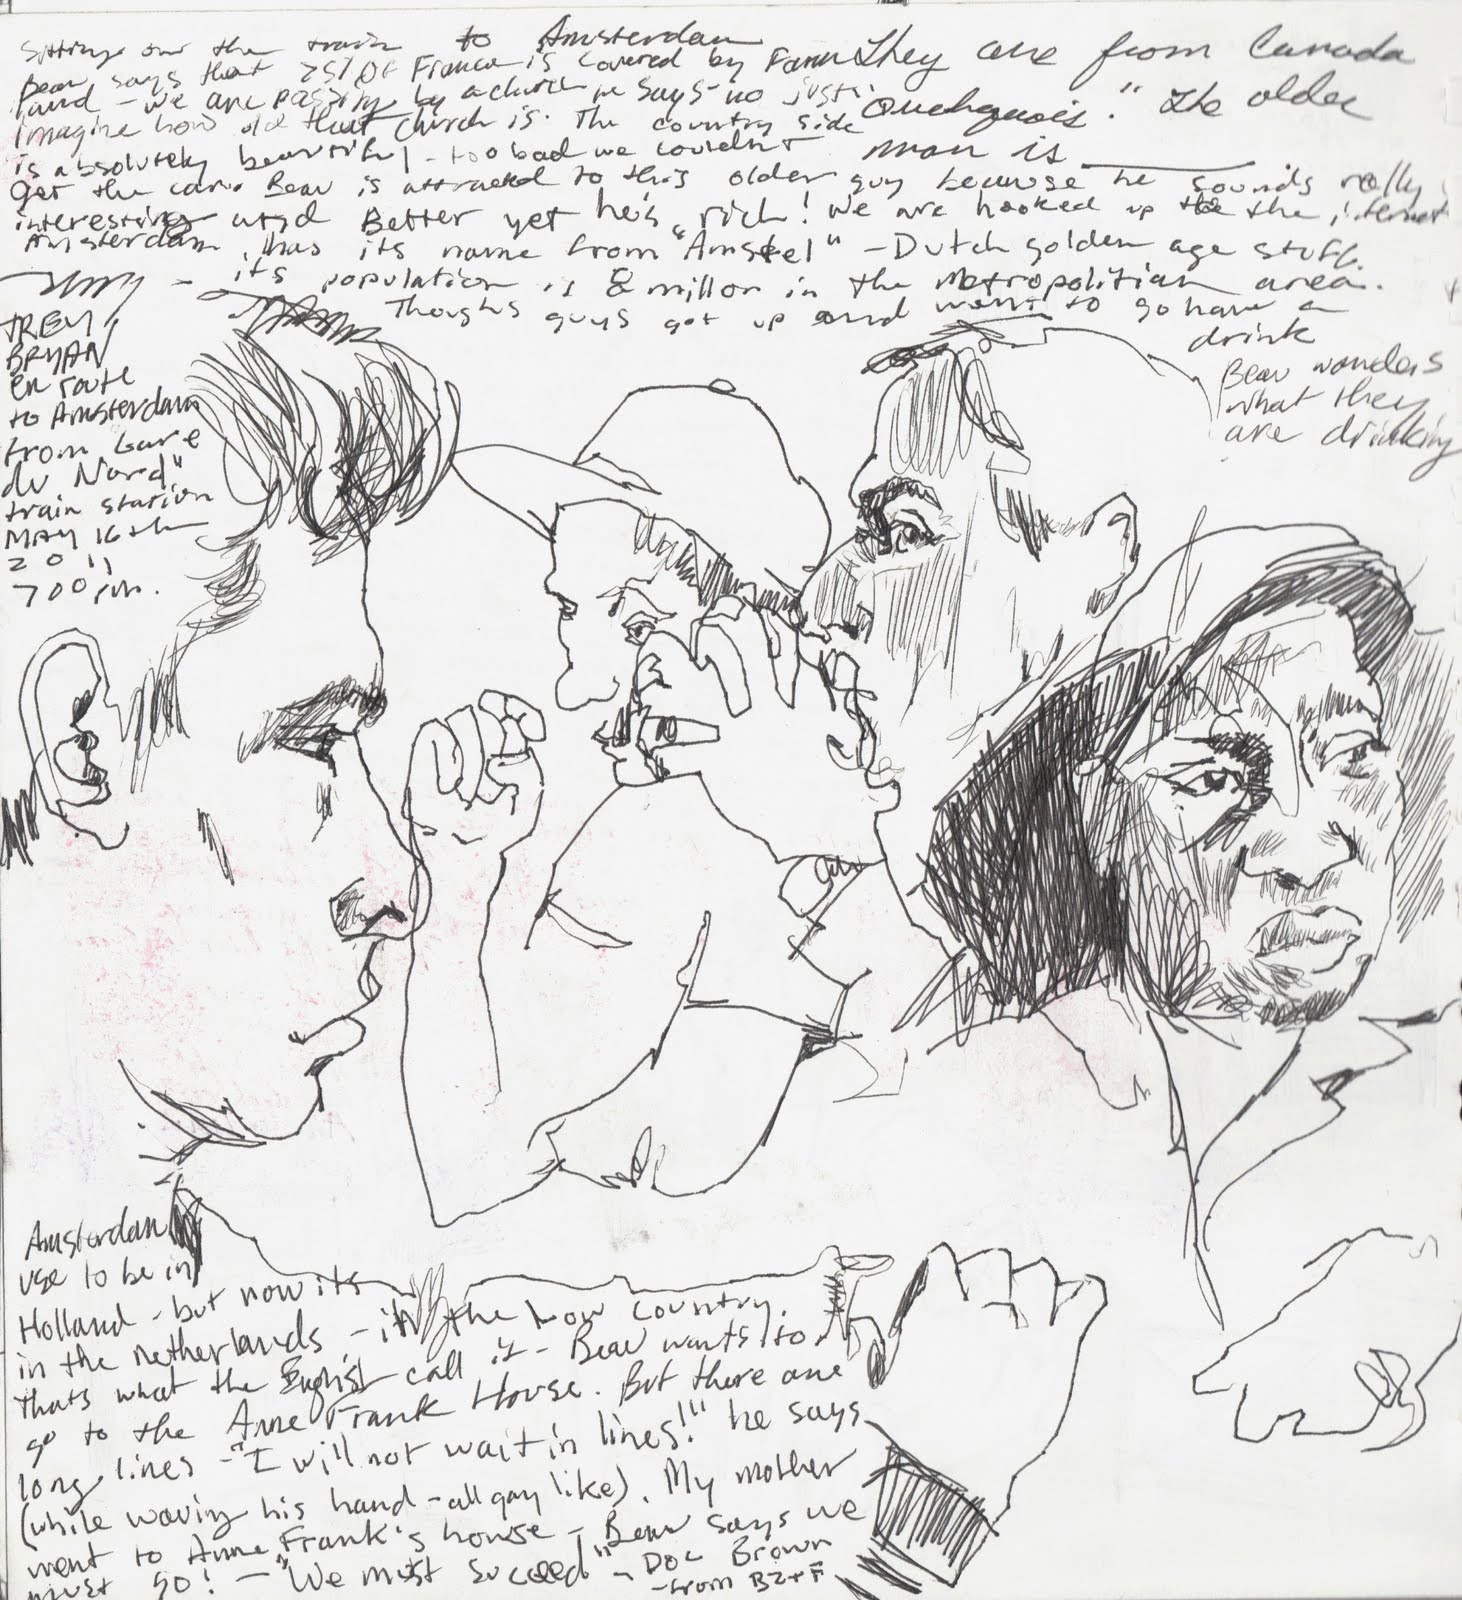 Sitting on the train to Amsterdam
Beau says that 75% of France is covered by Farm
land - we are passing by a church he says - no just
imagine how old that church is. The country side
is absolutely beautiful - too bad we couldn't
get the car. Beau is attracted to this older guy because he sounds really
interesting and Better yet he's rich! We are hooked up to the internet
Amsterdam has its name from "Amstel" - Dutch golden age stuff.
its population is 8 millon in the Metropolitian area.
Thoughs guys got up and want to go have a
drink
They are from Canada
"Quebequois." The older
man is
Beau wonders
what they
are drinking
TREY
BRYAN
en route
to Amsterdam
from Gare
du Nord"
train station
MAY 16th
2011
700pm.
Amsterdam
use to be in
Holland - but now its
in the netherlands - the Low country.
thats what the English call it - Beau wants to
go to the Anne Frank House. But there are
long lines - "I will not wait in lines!" he says
(while waving his hand - all gay like). My mother
went to Anne Frank's house - Beau says we
must go! - "We must succeed" - Doc Brown
- from B2tF